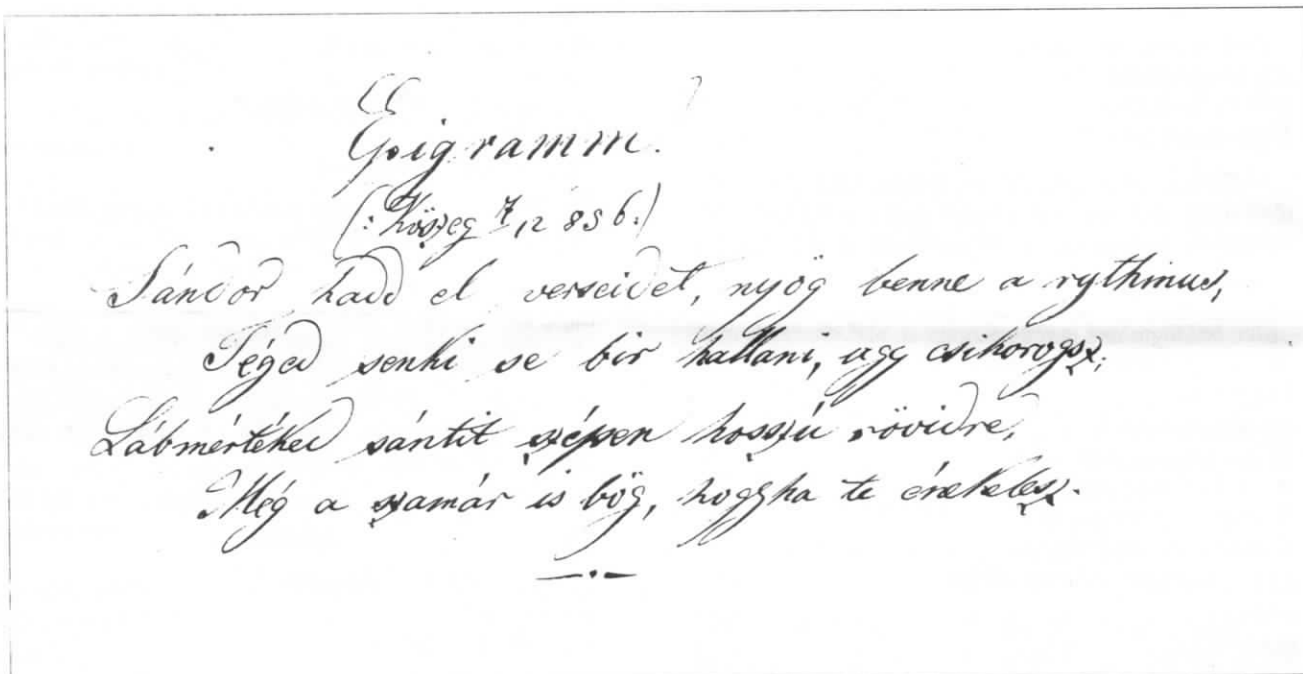 Epigramm.
(: Kőszeg 7/12 856 :)
Sándor hadd el verseidet, nyög benne a rythmus,
Téged senki se bir hallani, ugy csikorogsz,
Lábmértéked sántit szépen hosszú rövidre,
Még a szamár is bőg, hogyha te énekelesz.